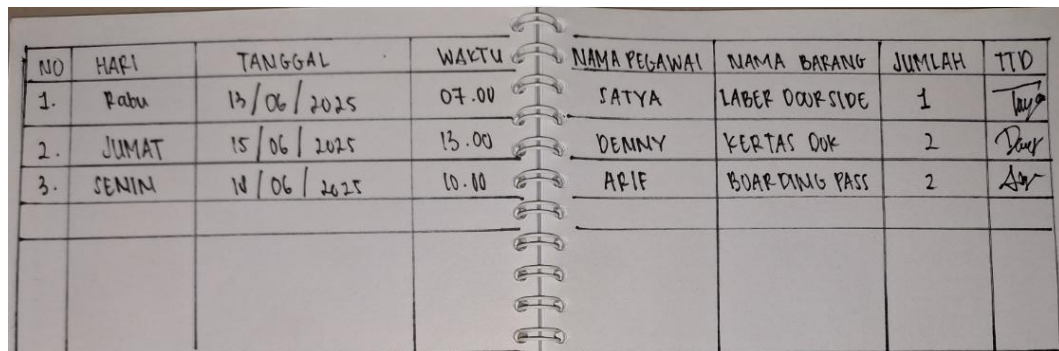 NO HARI TANGGAL WAKTU NAMA PEGAWAI NAMA BARANG JUMLAH TTD
1. Rabu 13/06/2025 07.00 SATYA LABER DOORSIDE 1
2. JUMAT 15/06/2025 13.00 DENNY KERTAS DOK 2
3. SENIN /06/2025 10.00 ARIF BOARDING PASS 2